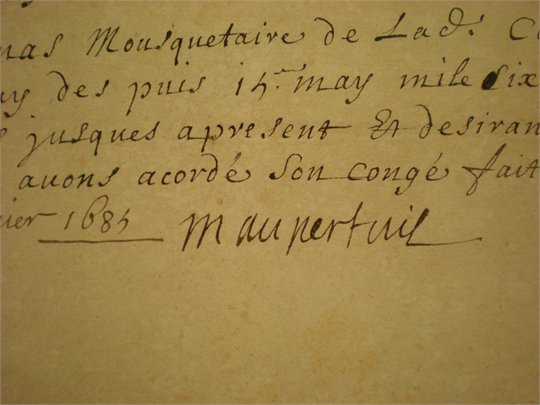 mas Mousquetaire de Lad.^e C
ay des puis 15.^e may mile six
jusques apresent Et desiran
auons acordé son congé fait
uier 1685 Maupertuis